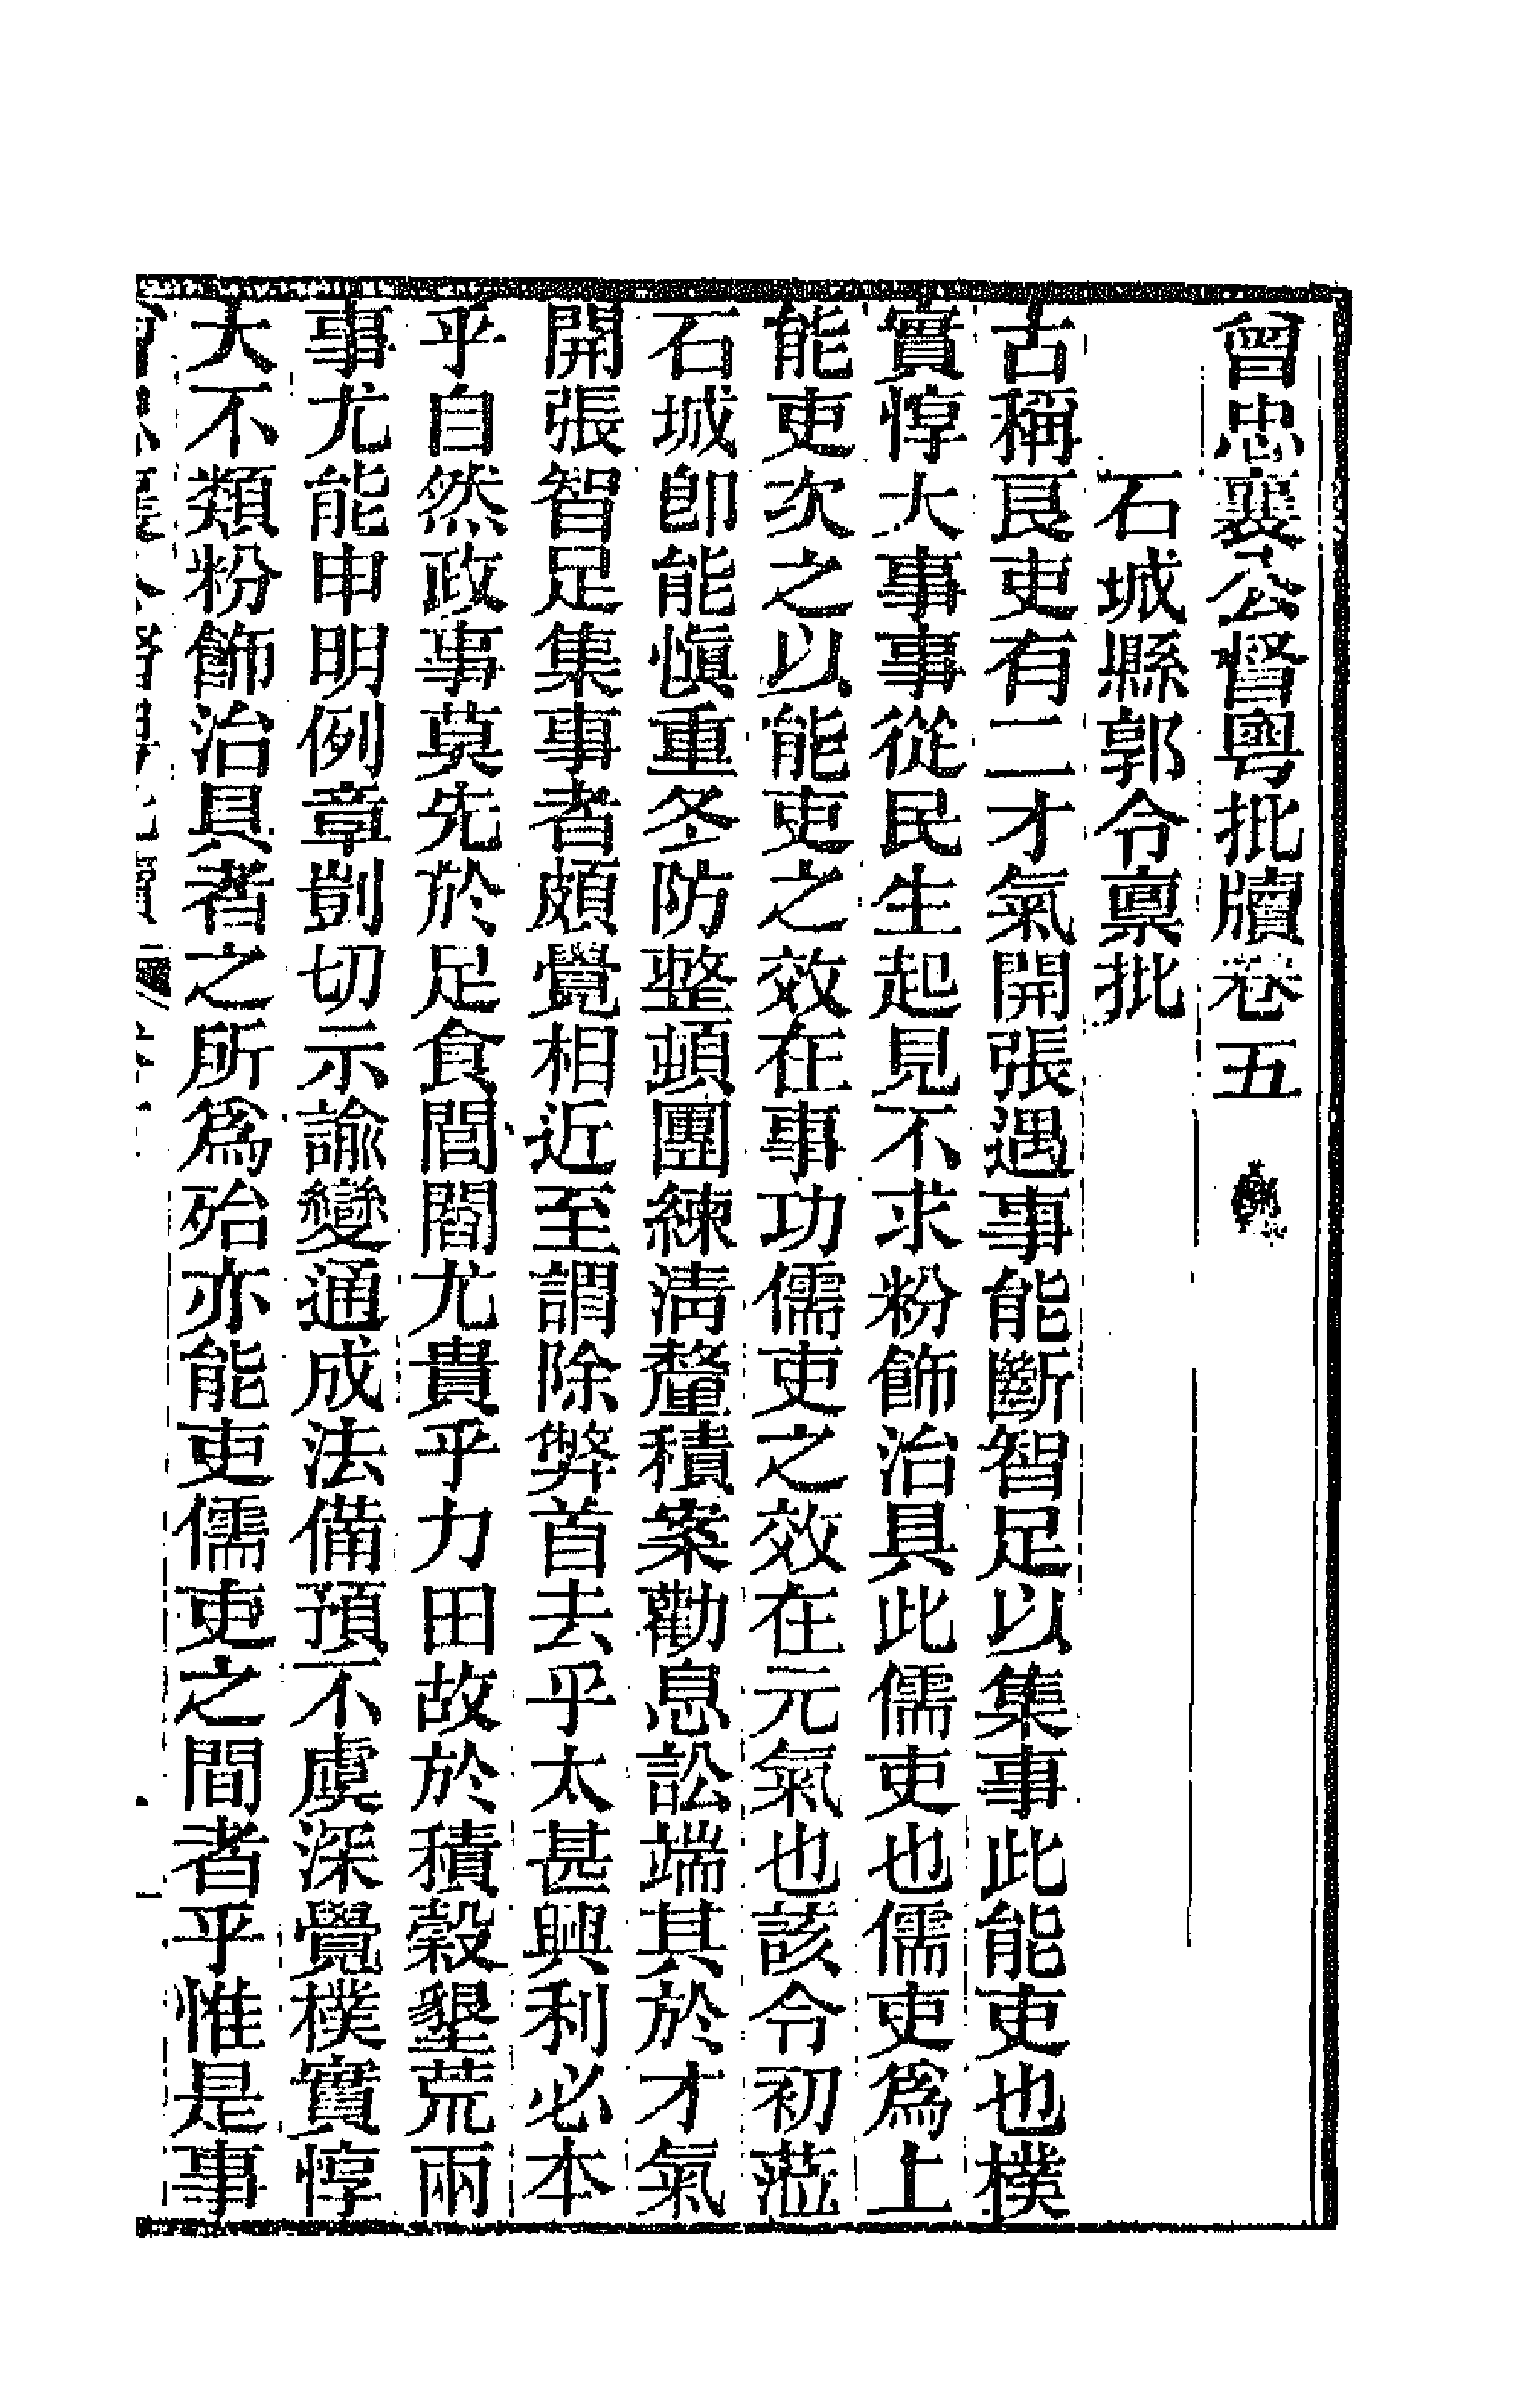 曾忠襄公督粵批牘卷五
石城縣郭令禀批
古稱良吏有二才氣開張遇事能斷智足以集事此能吏也樸
實惇大事事從民生起見不求粉飾治具此儒吏也儒吏爲上
能吏次之以能吏之效在事功儒吏之效在元氣也該令初蒞
石城卽能愼重冬防整頓團練淸釐積案勸息訟端其於才氣
開張智足集事者頗覺相近至謂除弊首去乎太甚興利必本
乎自然政事莫先於足食閭閻尤貴乎力田故於積穀墾荒兩
事尤能申明例章剴切示諭變通成法備預不虞深覺樸實惇
大不類粉飾治具者之所爲殆亦能吏儒吏之間者乎惟是事